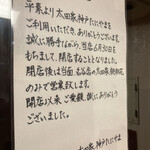 平素より太田家神戸たにやまを
ご利用いただき、ありがとうございます。
誠に勝手ながら、当店は6月30日を
もちまして、閉店することとなりました。
閉店後は当面、名谷店の太田家
のみで営業致します。
開店以来、ご愛顧、誠にありがとう
ございました。
太田家 神戸たにやま